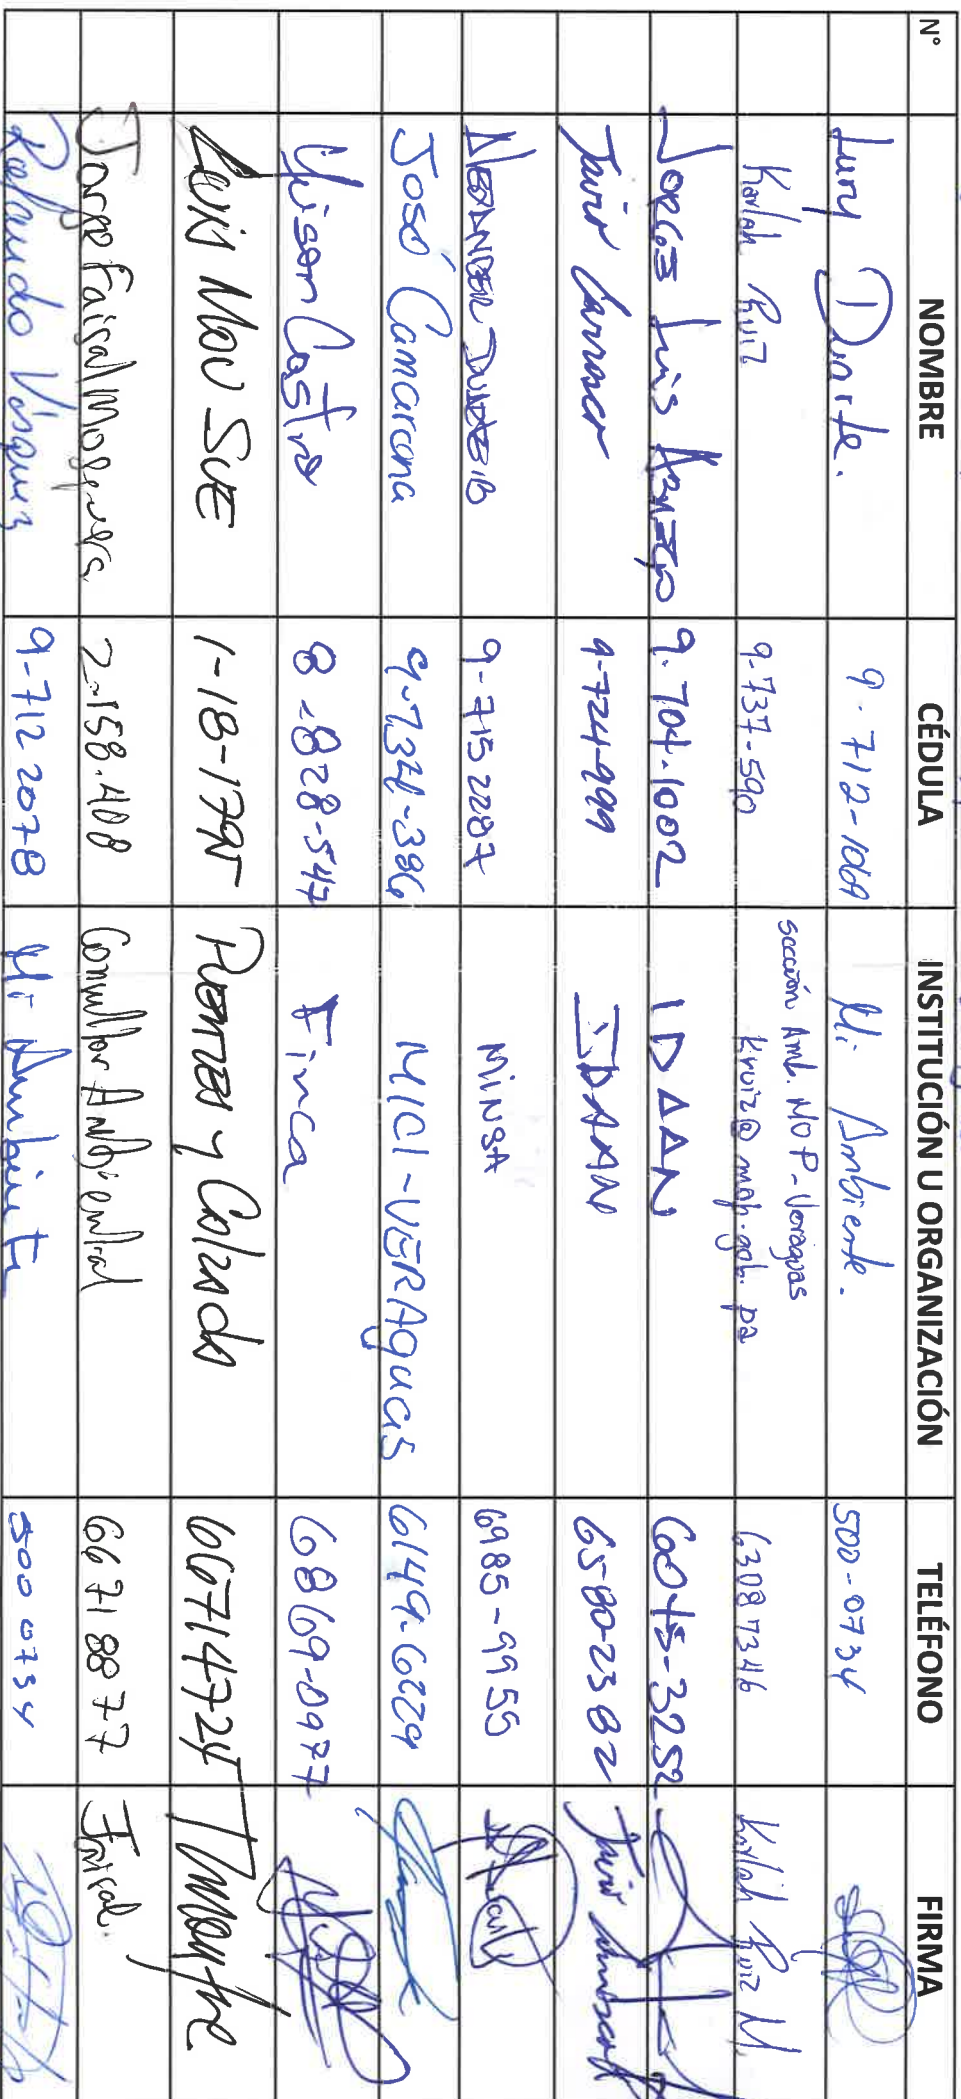 N° NOMBRE CÉDULA INSTITUCIÓN U ORGANIZACIÓN TELÉFONO FIRMA
Yury Duarte. 9-712-1069 Mi Ambiente. 500-0734
Karlah Ruiz 9-737-590 sección Amb. MOP-Veraguas 63087346 Karlah Ruiz M.
kruiz@mop.gob.pa
Jorge Luis Abrego 9-704-1002 IDAAN 6045-3252
Javier Carrasco 9-724-999 IDAAN 6580-2382 Javier Carrasco
9-715 2287 MINSA 6985-9955
José Camarena 9-734-386 MICI-VERAguas 6149-6229
Yison Castro 8-828-547 Finca 6869-0977
Luis Mou Sue 1-18-1795 Puentes y Calzada 66714724
Jorge Faisal Mosquera 2-158-408 Consultor Ambiental 66718877 Faisal.
Rolando Vásquez 9-712 2078 Mi Ambiente 500 0734